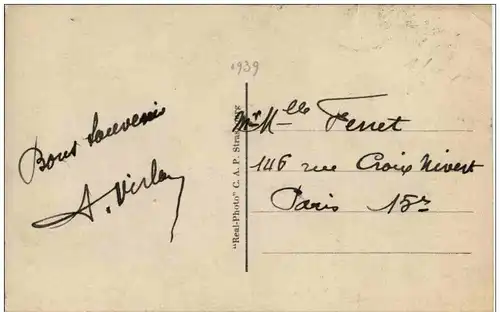 1939
Bons souvenirs
A.
"Real-Photo" C. A. P. Strasbourg
Mr Mlle Ferret
146 rue Croix Nivert
Paris 15e